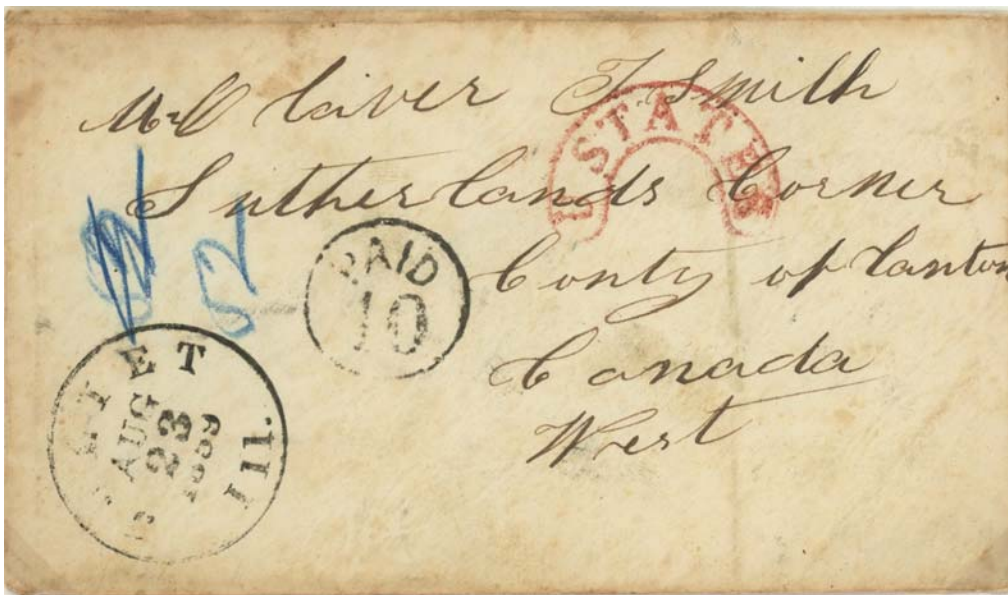 Mr Oliver T. Smith
Sutherlands Corner
Conty of Canton
Canada
West
U. STATES
PAID
10
JOLIET
AUG
23
1859
Ill.